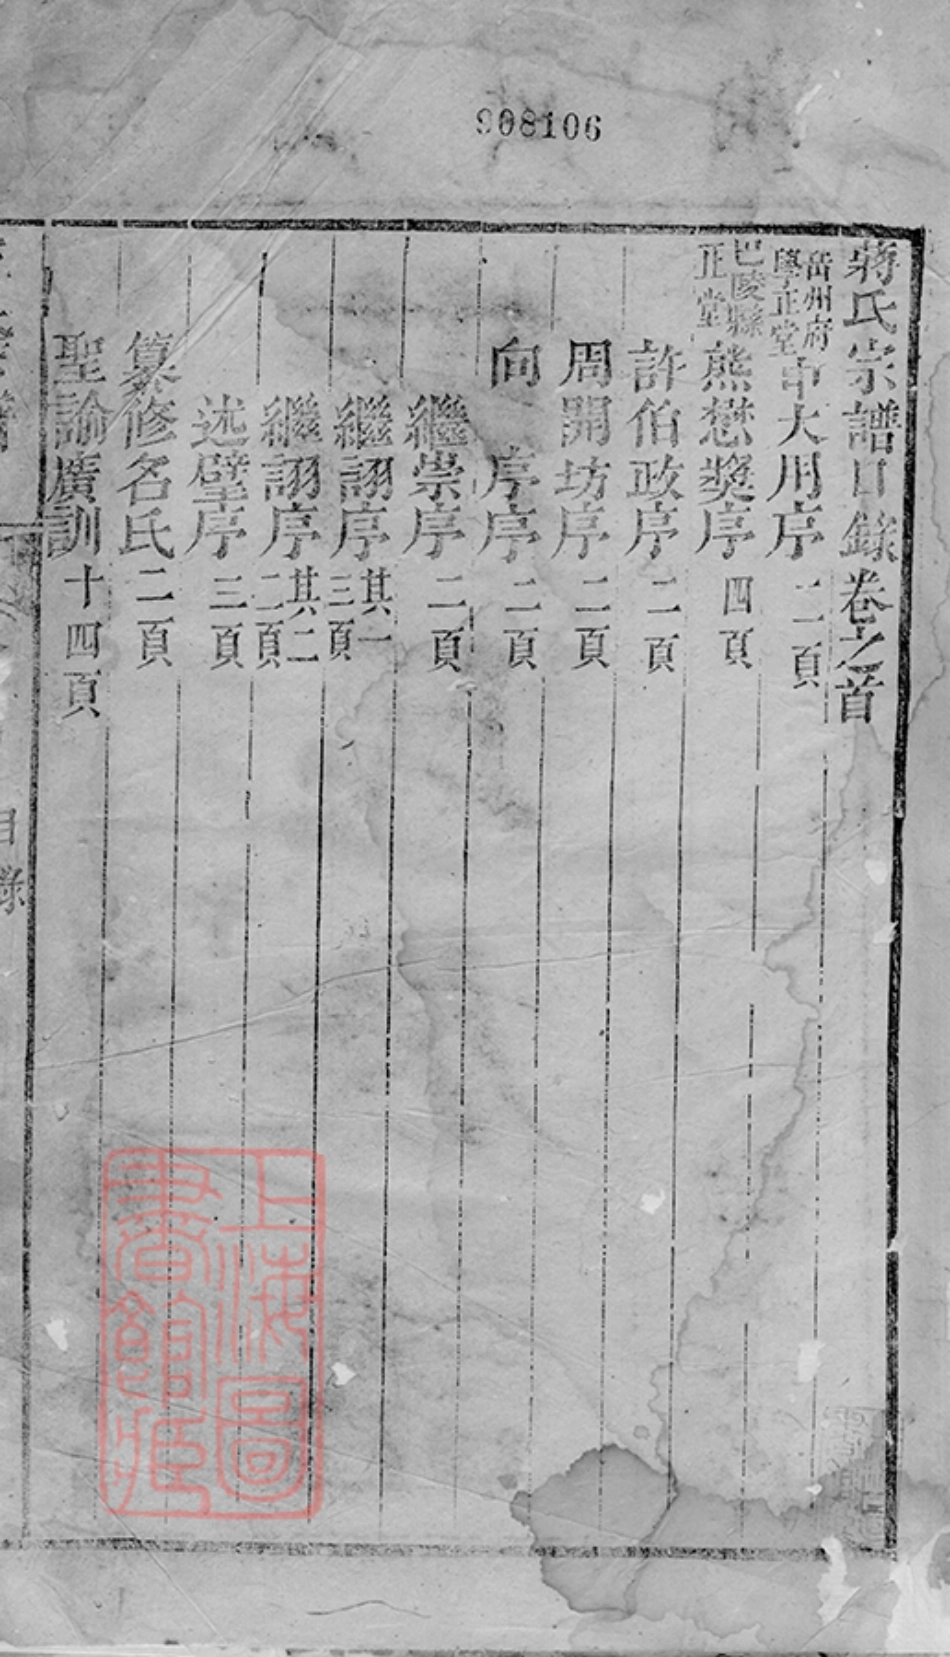 908106
蔣氏宗譜目錄卷之首
岳州府學正堂申大用序二頁
巴陵縣正堂熊懋獎序四頁
許伯政序二頁
周開坊序二頁
向 序序二頁
繼崇序二頁
繼詡序其一三頁
繼詡序其二二頁
述璧序三頁
纂修名氏二頁
聖諭廣訓十四頁
目錄
上海圖書館藏